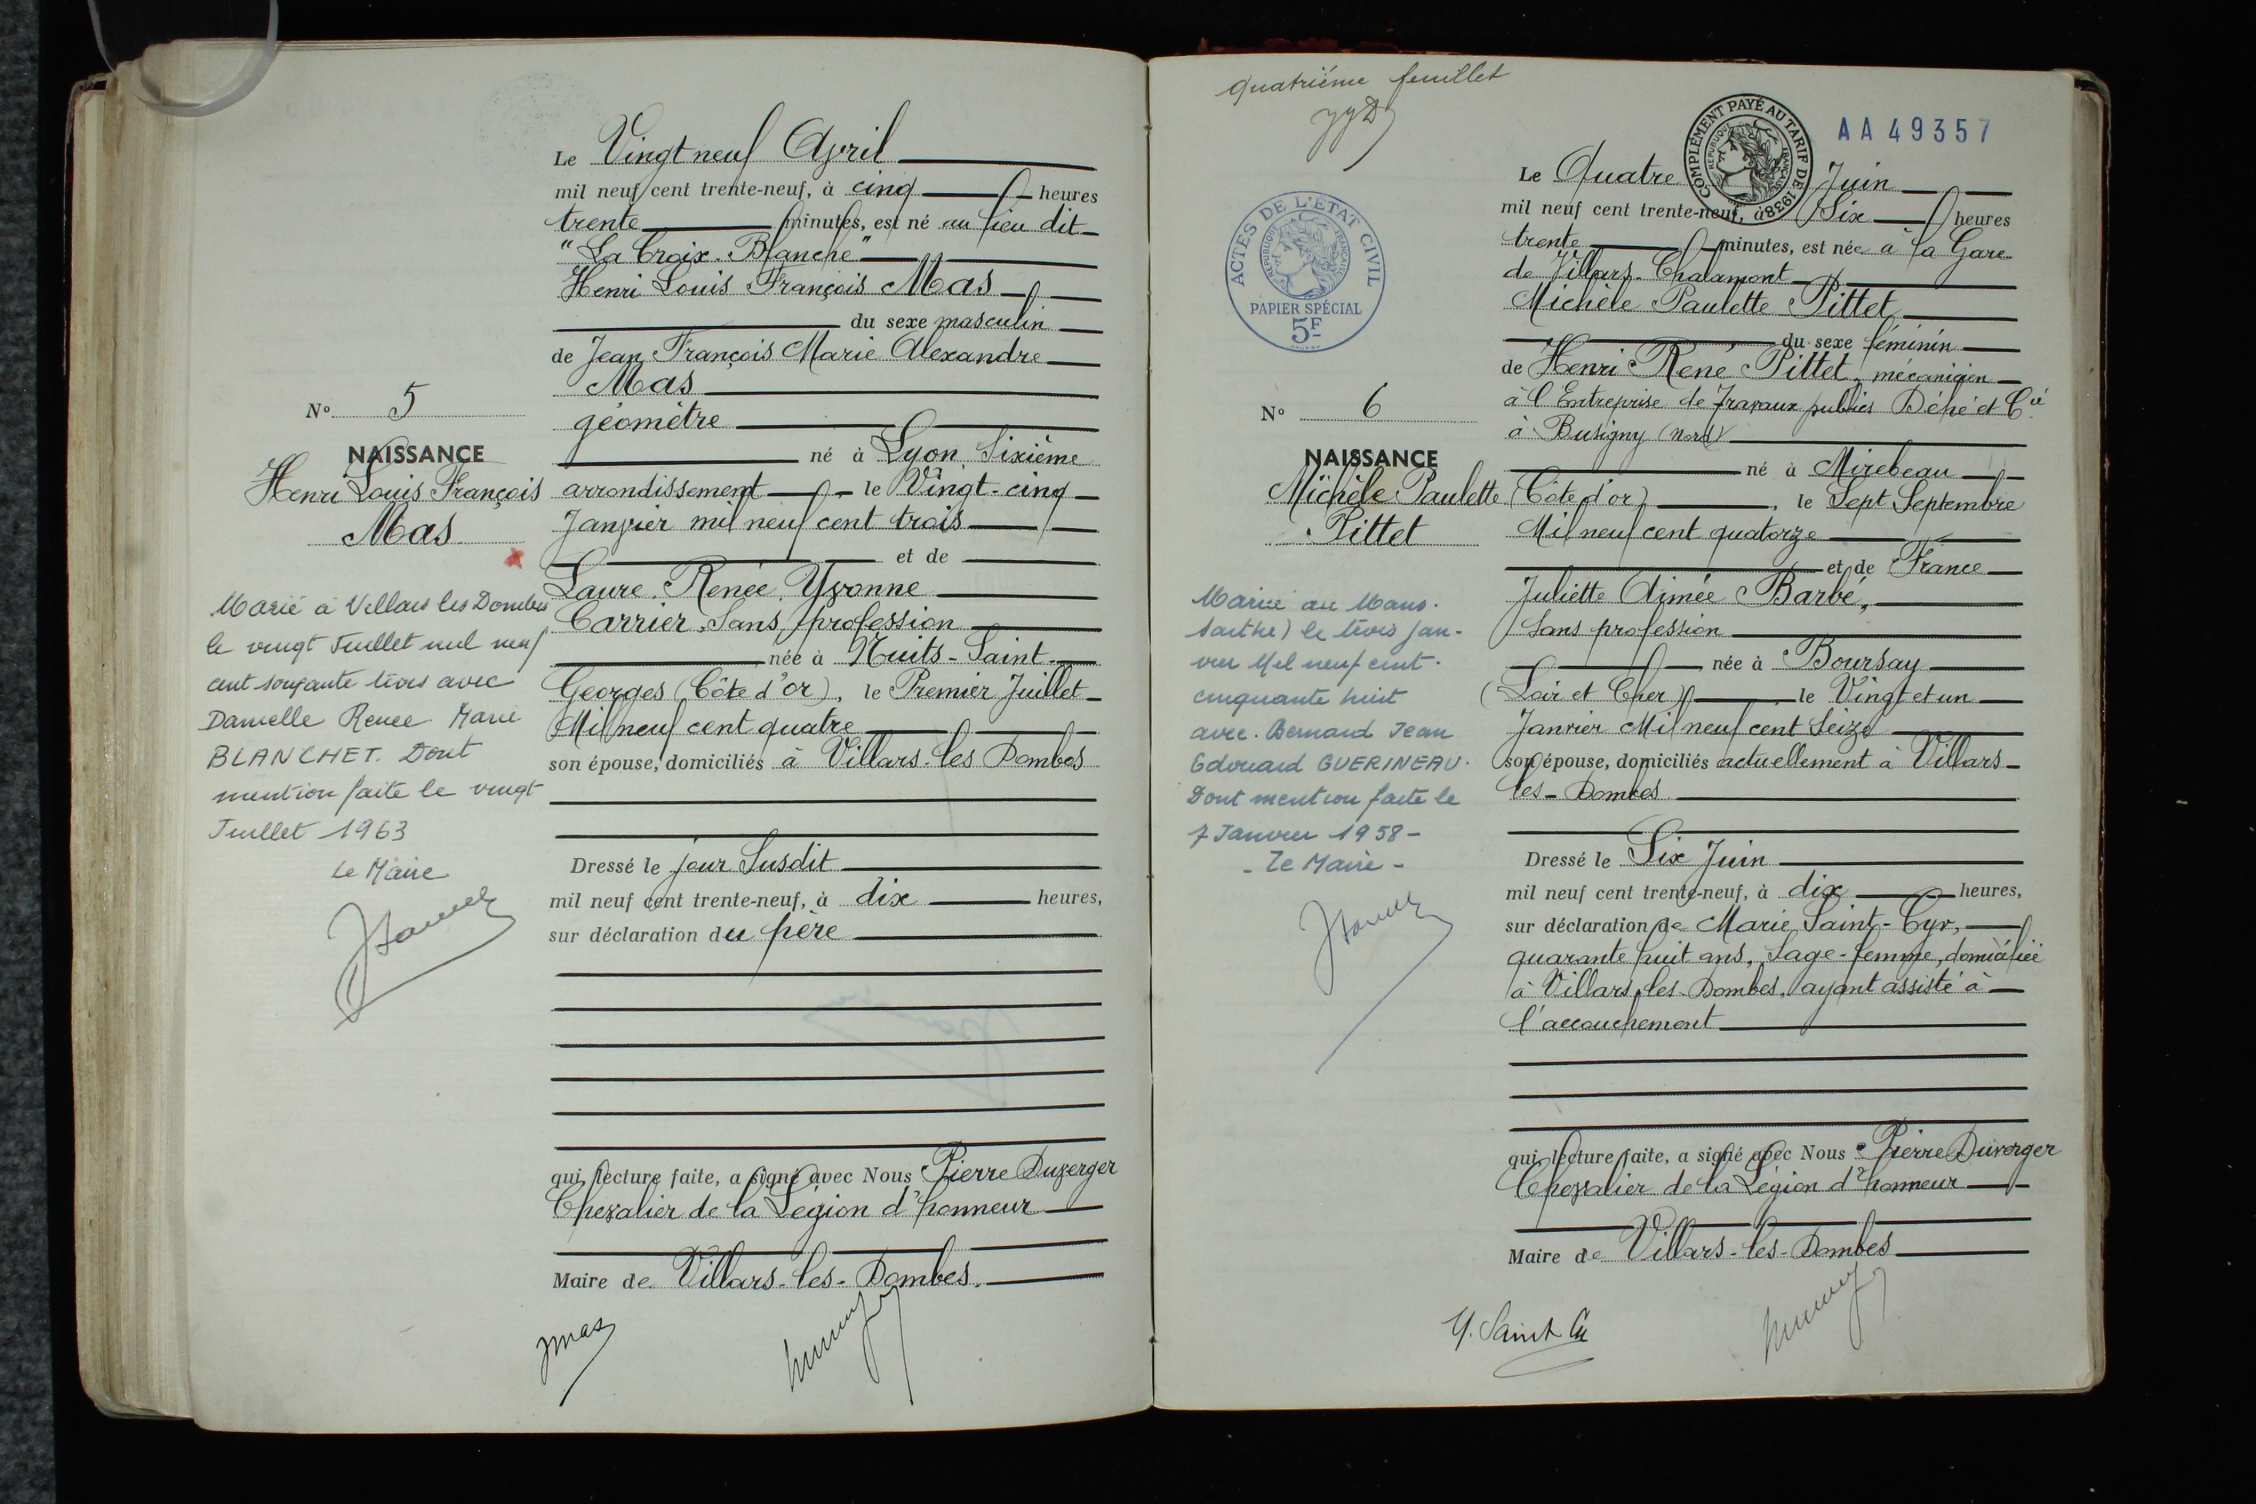 Le Vingt neuf Avril
mil neuf cent trente-neuf, à cinq heures
trente minutes, est né au lieu dit
"La Croix-Blanche"
Henri Louis François Mas
du sexe masculin
de Jean François Marie Alexandre
Mas
géomètre
né à Lyon Sixième
arrondissement le Vingt-cinq
Janvier mil neuf cent trois
et de
Laure Renée Yvonne
Carrier, Sans profession
née à Nuits-Saint-
Georges (Côte d'or), le Premier Juillet
Mil neuf cent quatre
son épouse, domiciliés à Villars-les Dombes
Dressé le jour Susdit
mil neuf cent trente-neuf, à dix heures,
sur déclaration du père
qui, lecture faite, a signé avec Nous Pierre Duverger
Chevalier de la Légion d'honneur
Maire de Villars-les-Dombes.
JMas
N° 5
NAISSANCE
Henri Louis François
Mas
Marié à Villars les Dombes
le vingt Juillet mil neuf
cent soixante trois avec
Danielle Renée Marie
BLANCHET. Dont
mention faite le vingt
Juillet 1963
Le Maire
quatrième feuillet
COMPLÉMENT PAYÉ AU TARIF DE 1938
RÉPUBLIQUE FRANÇAISE
AA 49357
ACTES DE L'ÉTAT CIVIL
RÉPUBLIQUE FRANÇAISE
PAPIER SPÉCIAL
5F
N° 6
NAISSANCE
Michèle Paulette
Pittet
Mariée au Mans.
Sarthe) le trois jan-
vier Mil neuf cent.
cinquante huit
avec. Bernard Jean
Edouard GUERINEAU.
Dont mention faite le
7 Janvier 1958-
- Le Maire -
Le Quatre Juin
mil neuf cent trente-neuf, à Six heures
trente minutes, est née à la Gare
de Villars-Chalamont
Michèle Paulette Pittet
du sexe féminin
de Henri René Pittet, mécanicien
à l'Entreprise de Travaux publics Déhé et Cié
à Busigny (Nord)
né à Mirebeau
(Côte d'or), le Sept Septembre
Mil neuf cent quatorze
et de France
Juliette Aimée Barbé,
Sans profession
née à Boursay
(Loir et Cher) le Vingt et un
Janvier Mil neuf cent Seize
son épouse, domiciliés actuellement à Villars-
les-Dombes
Dressé le Six Juin
mil neuf cent trente-neuf, à dix heures,
sur déclaration de Marie Saint-Cyr,
quarante huit ans, Sage-femme, domiciliée
à Villars-les-Dombes, ayant assisté à
l'accouchement
qui, lecture faite, a signé avec Nous Pierre Duverger
Chevalier de la Légion d'honneur
Maire de Villars-les-Dombes